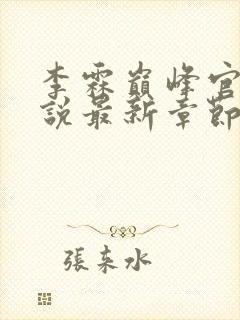 李霖巔峰官
說最新章節
張未水